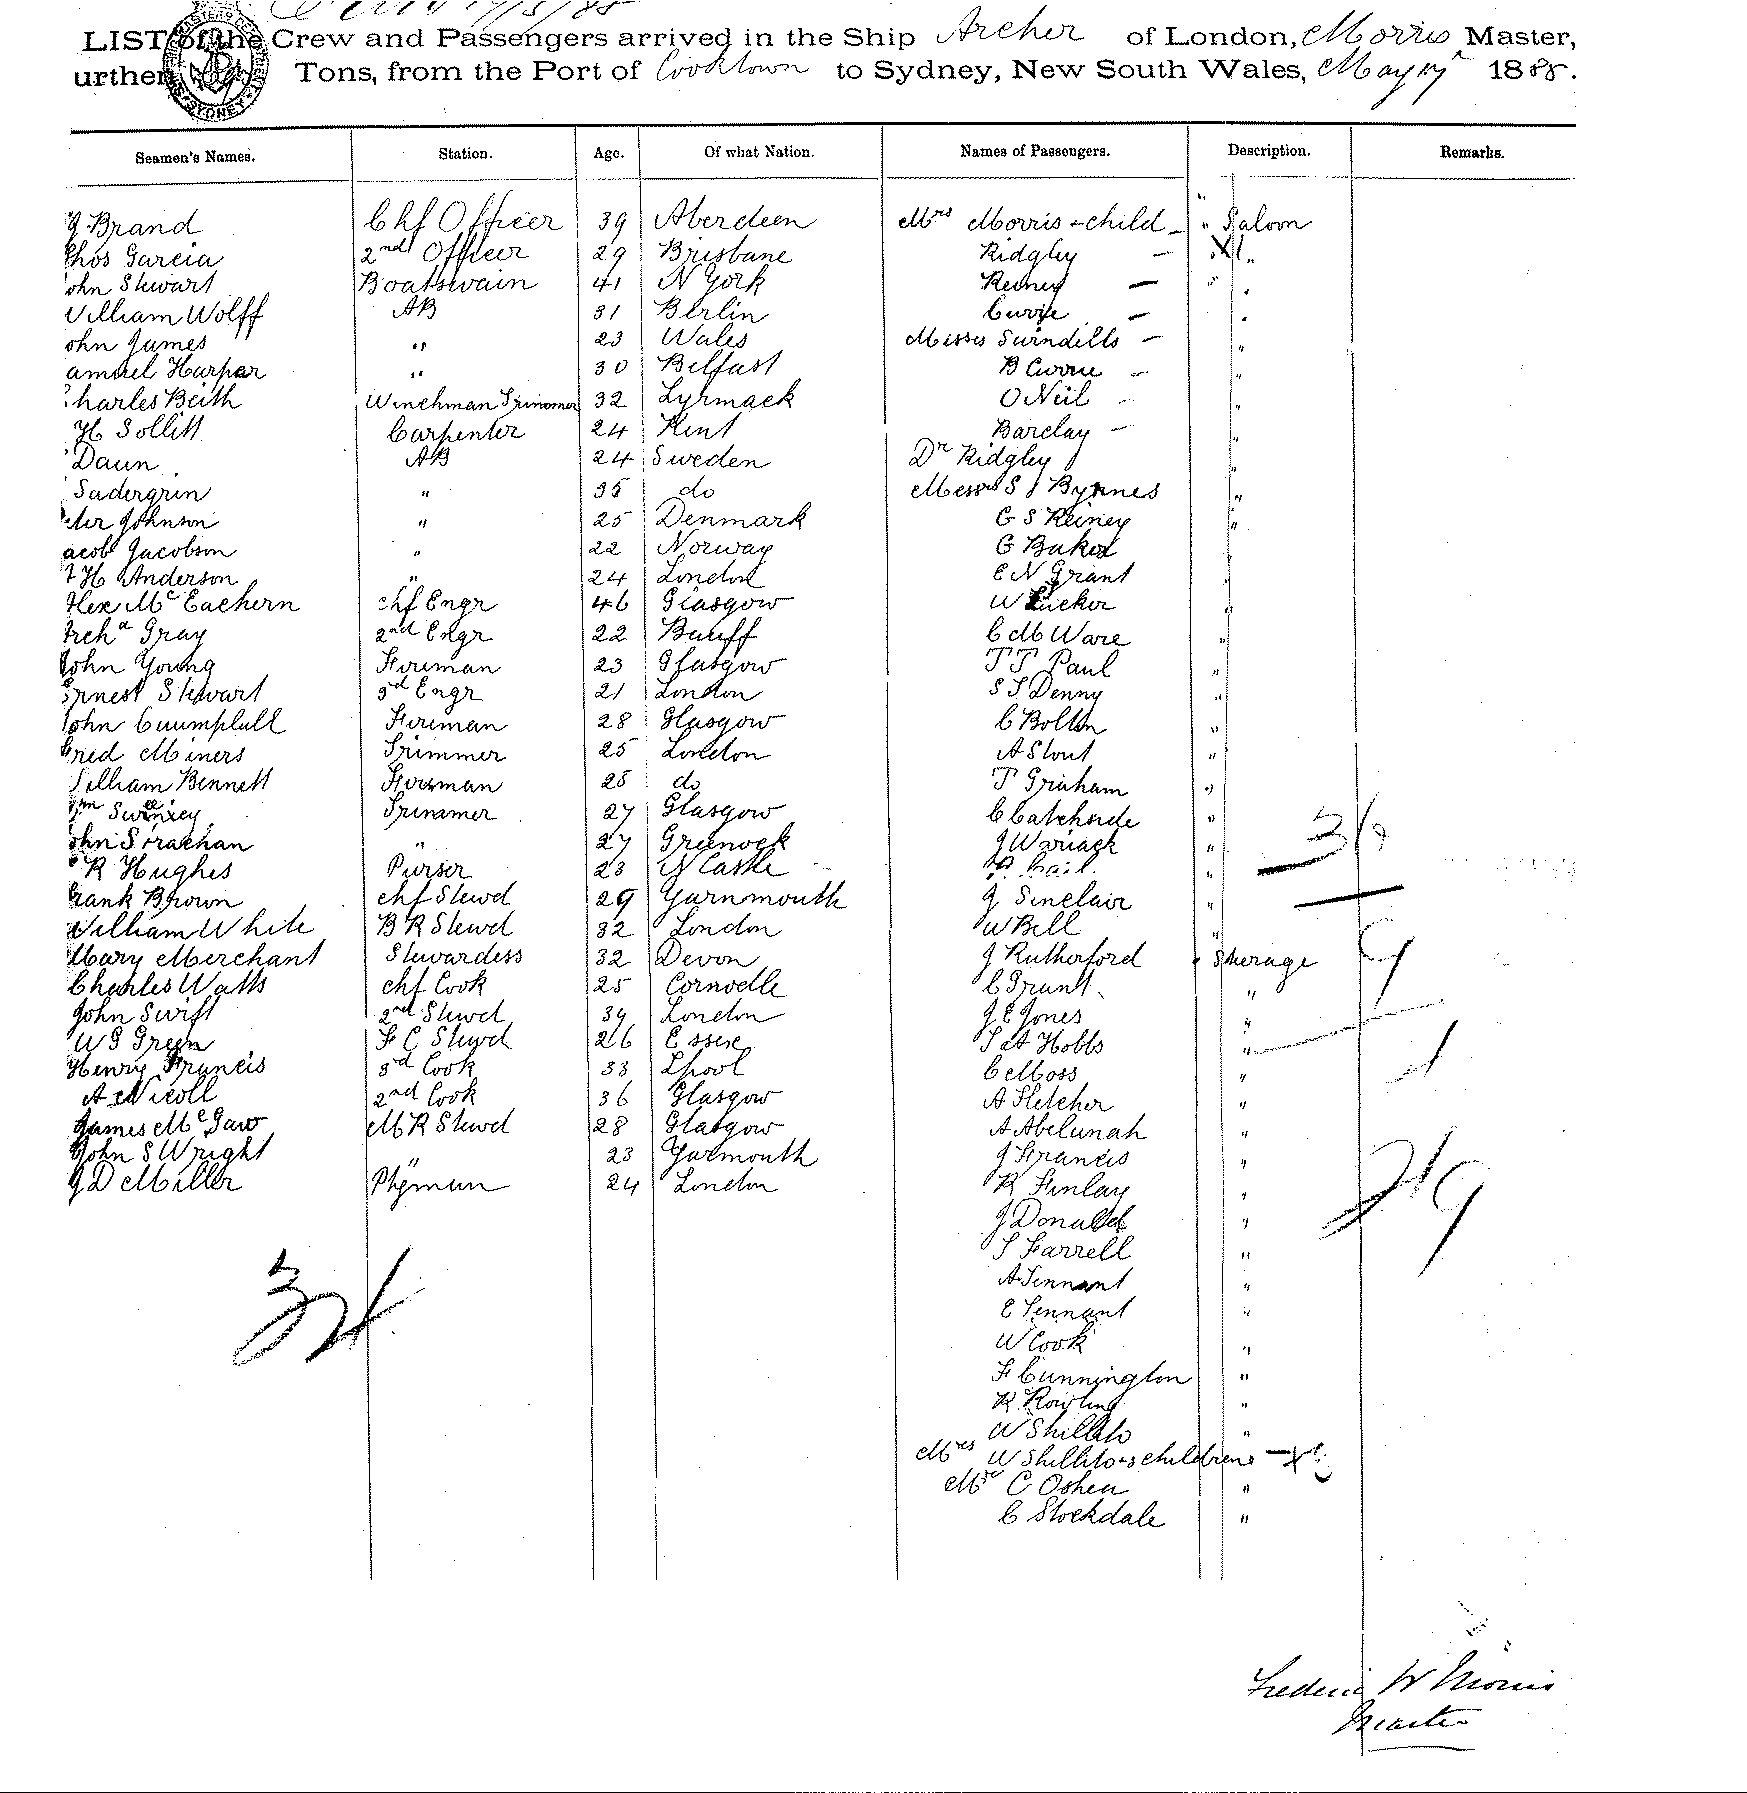 LIST of the Crew and Passengers arrived in the Ship Archer of London, Morris Master,
urthen Tons, from the Port of Cooktown to Sydney, New South Wales, May 17 1885.
Seamen's Names. Station. Age. Of what Nation. Names of Passengers. Description. Remarks.
J Brand Chf Officer 39 Aberdeen Mrs Morris + child " Saloon
Thos Garcia 2nd Officer 29 Brisbane Ridgley
ohn Stewart Boatswain 41 N York Reiney " "
William Wolff AB 31 Berlin Currie "
ohn James " 23 Wales Misses Swindells "
amuel Harper " 30 Belfast B Currie "
harles Beith Winchman Trimmer 32 Lyrmack O Neil "
H Sollitt Carpenter 24 Kent Barclay "
Daun AB 24 Sweden Dr Ridgley "
Sadergrin " 35 do Messrs S J Byrnes "
eter Johnson " 25 Denmark G S Reiney "
acob Jacobson " 22 Norway G Baker "
H Anderson " 24 London E N Grant "
Alex McEachern chf Engr 46 Glasgow W Tucker "
Archd Gray 2nd Engr 22 Banff C M Ware "
John Young Fireman 23 Glasgow T T Paul "
Ernest Stewart 3d Engr 21 London S S Denny "
John Fireman 28 Glasgow C Bolton "
Fried Miners Trimmer 25 London A Stout "
William Bennett Fireman 25 do T Graham "
Wm Sweeney Trimmer 27 Glasgow C "
ohn Strachan " 27 Greenock J "
R Hughes Purser 23 N Castle "
Frank Brown chf Stewd 29 Yarnmouth J Sinclair "
William White B R Stewd 32 London W Bell "
Mary Merchant Stewardess 32 Devon J Rutherford Steerage
Charles Watts chf Cook 25 Cornwelle C Grant "
John Swift 2nd Stewd 39 London J E Jones "
W G Green F C Stewd 26 Essex S A Hobbs "
Henry Francis 3d Cook 33 Lpool C Moss "
A Nicoll 2nd Cook 36 Glasgow A Fletcher "
James McGaw M R Stewd 28 Glasgow A Abelunah "
John S Wright " 23 Yarmouth J Francis "
J D Miller Ptyman 24 London R Finlay "
J Donald "
S Farrell "
A Tennant "
E Tennant "
W Cook "
F Cunnington "
R Rowling "
W Shillito "
Mrs W Shillito + 3 children
Mr C Oshea "
C Stockdale "
Frederic W Morris
Master